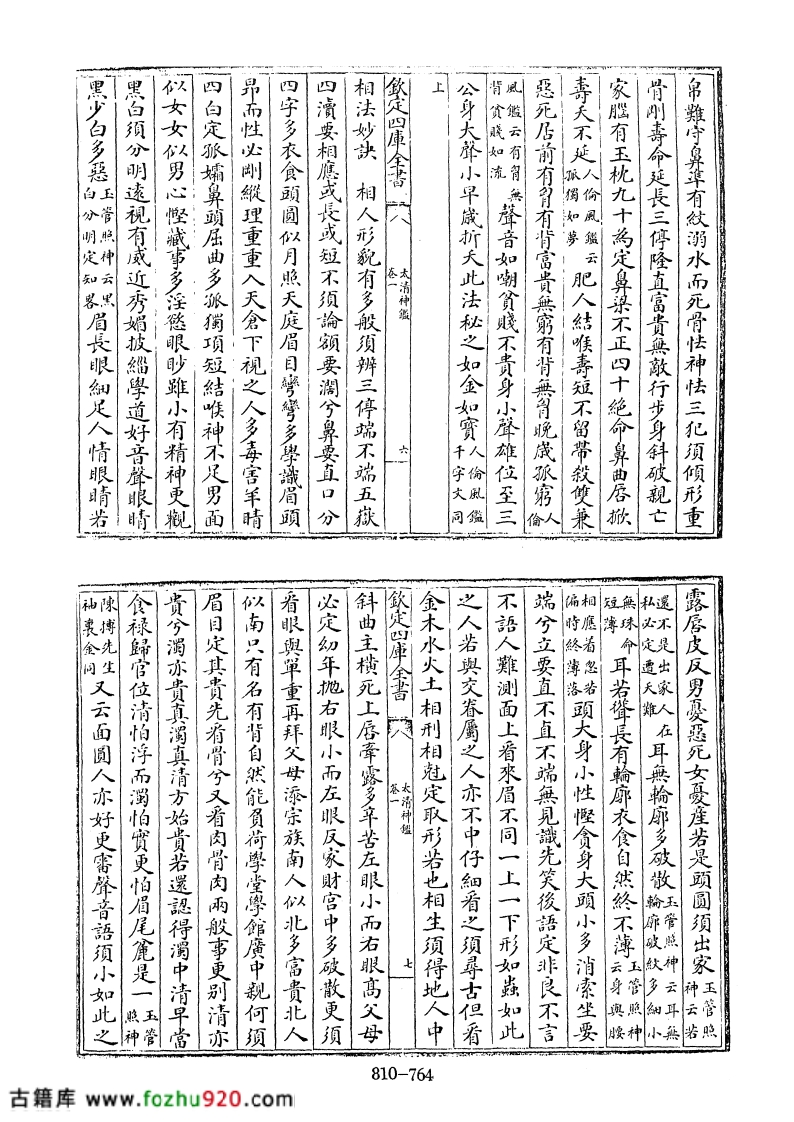 帛難守鼻準有紋溺水而死骨怯神怯三犯須傾形重
骨剛壽命延長三停隆直富貴無敵行步身斜破親亡
家腦有玉枕九十為定鼻梁不正四十絕命鼻曲唇掀
壽夭不延人倫風鑑云孤獨如夢肥人結喉壽短不留帶殺雙兼
惡死居前有胷有背富貴無窮有背無胷晚歲孤窮人倫
風鑑云有胷無背貧賤如流聲音如嘲貧賤不貴身小聲雄位至三
公身大聲小早歲折夭此法秘之如金如寶人倫風鑑千字文同
上
欽定四庫全書
太清神鑑
卷一
六
相法妙訣 相人形貌有多般須辨三停端不端五嶽
四瀆要相應或長或短不須論額要濶兮鼻要直口分
四字多衣食頭圓似月照天庭眉目彎彎多學識眉頭
昻而性必剛縱理重重入天倉下視之人多毒害羊睛
四白定孤孀鼻頭屈曲多孤獨項短結喉神不足男面
似女女似男心慳藏事多淫慾眼眇雖小有精神更觀
黑白須分明遠視有威近秀媚披緇學道好音聲眼睛
黑少白多惡玉管照神云黑白分明定知畧眉長眼細足人情眼睛若
露唇皮反男憂惡死女憂產若是頭圓須出家玉管照神云若
還不是出家人在私必定遭夭難耳無輪廓多破散玉管照神云耳無輪廓破紋多細小
無珠命短薄耳若聳長有輪廓衣食自然終不薄玉管照神云身與腰
相應着忽若偏時終薄落頭大身小性慳貪身大頭小多消索坐要
端兮立要直不直不端無見識先笑後語定非良不言
不語人難測面上看來眉不同一上一下形如蟲如此
之人若與交眷屬之人亦不中仔細看之須尋古但看
金木水火土相刑相尅定取形若也相生須得地人中
欽定四庫全書
太清神鑑
卷一
七
斜曲主橫死上唇牽露多辛苦左眼小而右眼髙父母
必定幼年抛右眼小而左眼反家財宫中多破散更須
看眼與單重再拜父母添宗族南人似北多富貴北人
似南只有名有背自然能負荷學堂學館廣中親何須
眉目定其貴先看骨兮又看肉骨肉兩般事更别清亦
貴兮濁亦貴真濁真清方始貴若還認得濁中清早當
食祿歸官位清怕浮而濁怕實更怕眉尾麄是一玉管照神
陳摶先生袖裏金同又云面圓人亦好更審聲音語須小如此之
810-764
古籍库 www.fozhu920.com